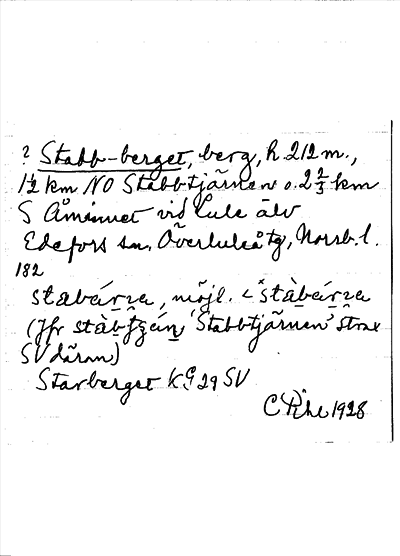 ? Stabb-berget, berg, h. 212 m.,
1½ km NO Stabbtjärnen o. 2⅔ km
S Åminnet vid Lule älv
Edefors sn, Överluleå tg, Norrb. l.
182
stabárɪa, möjl. < *stàbárɪa
(Jfr 'Stabbtjärnen' strax
SV därom)
Starberget KG 29 SV
1928